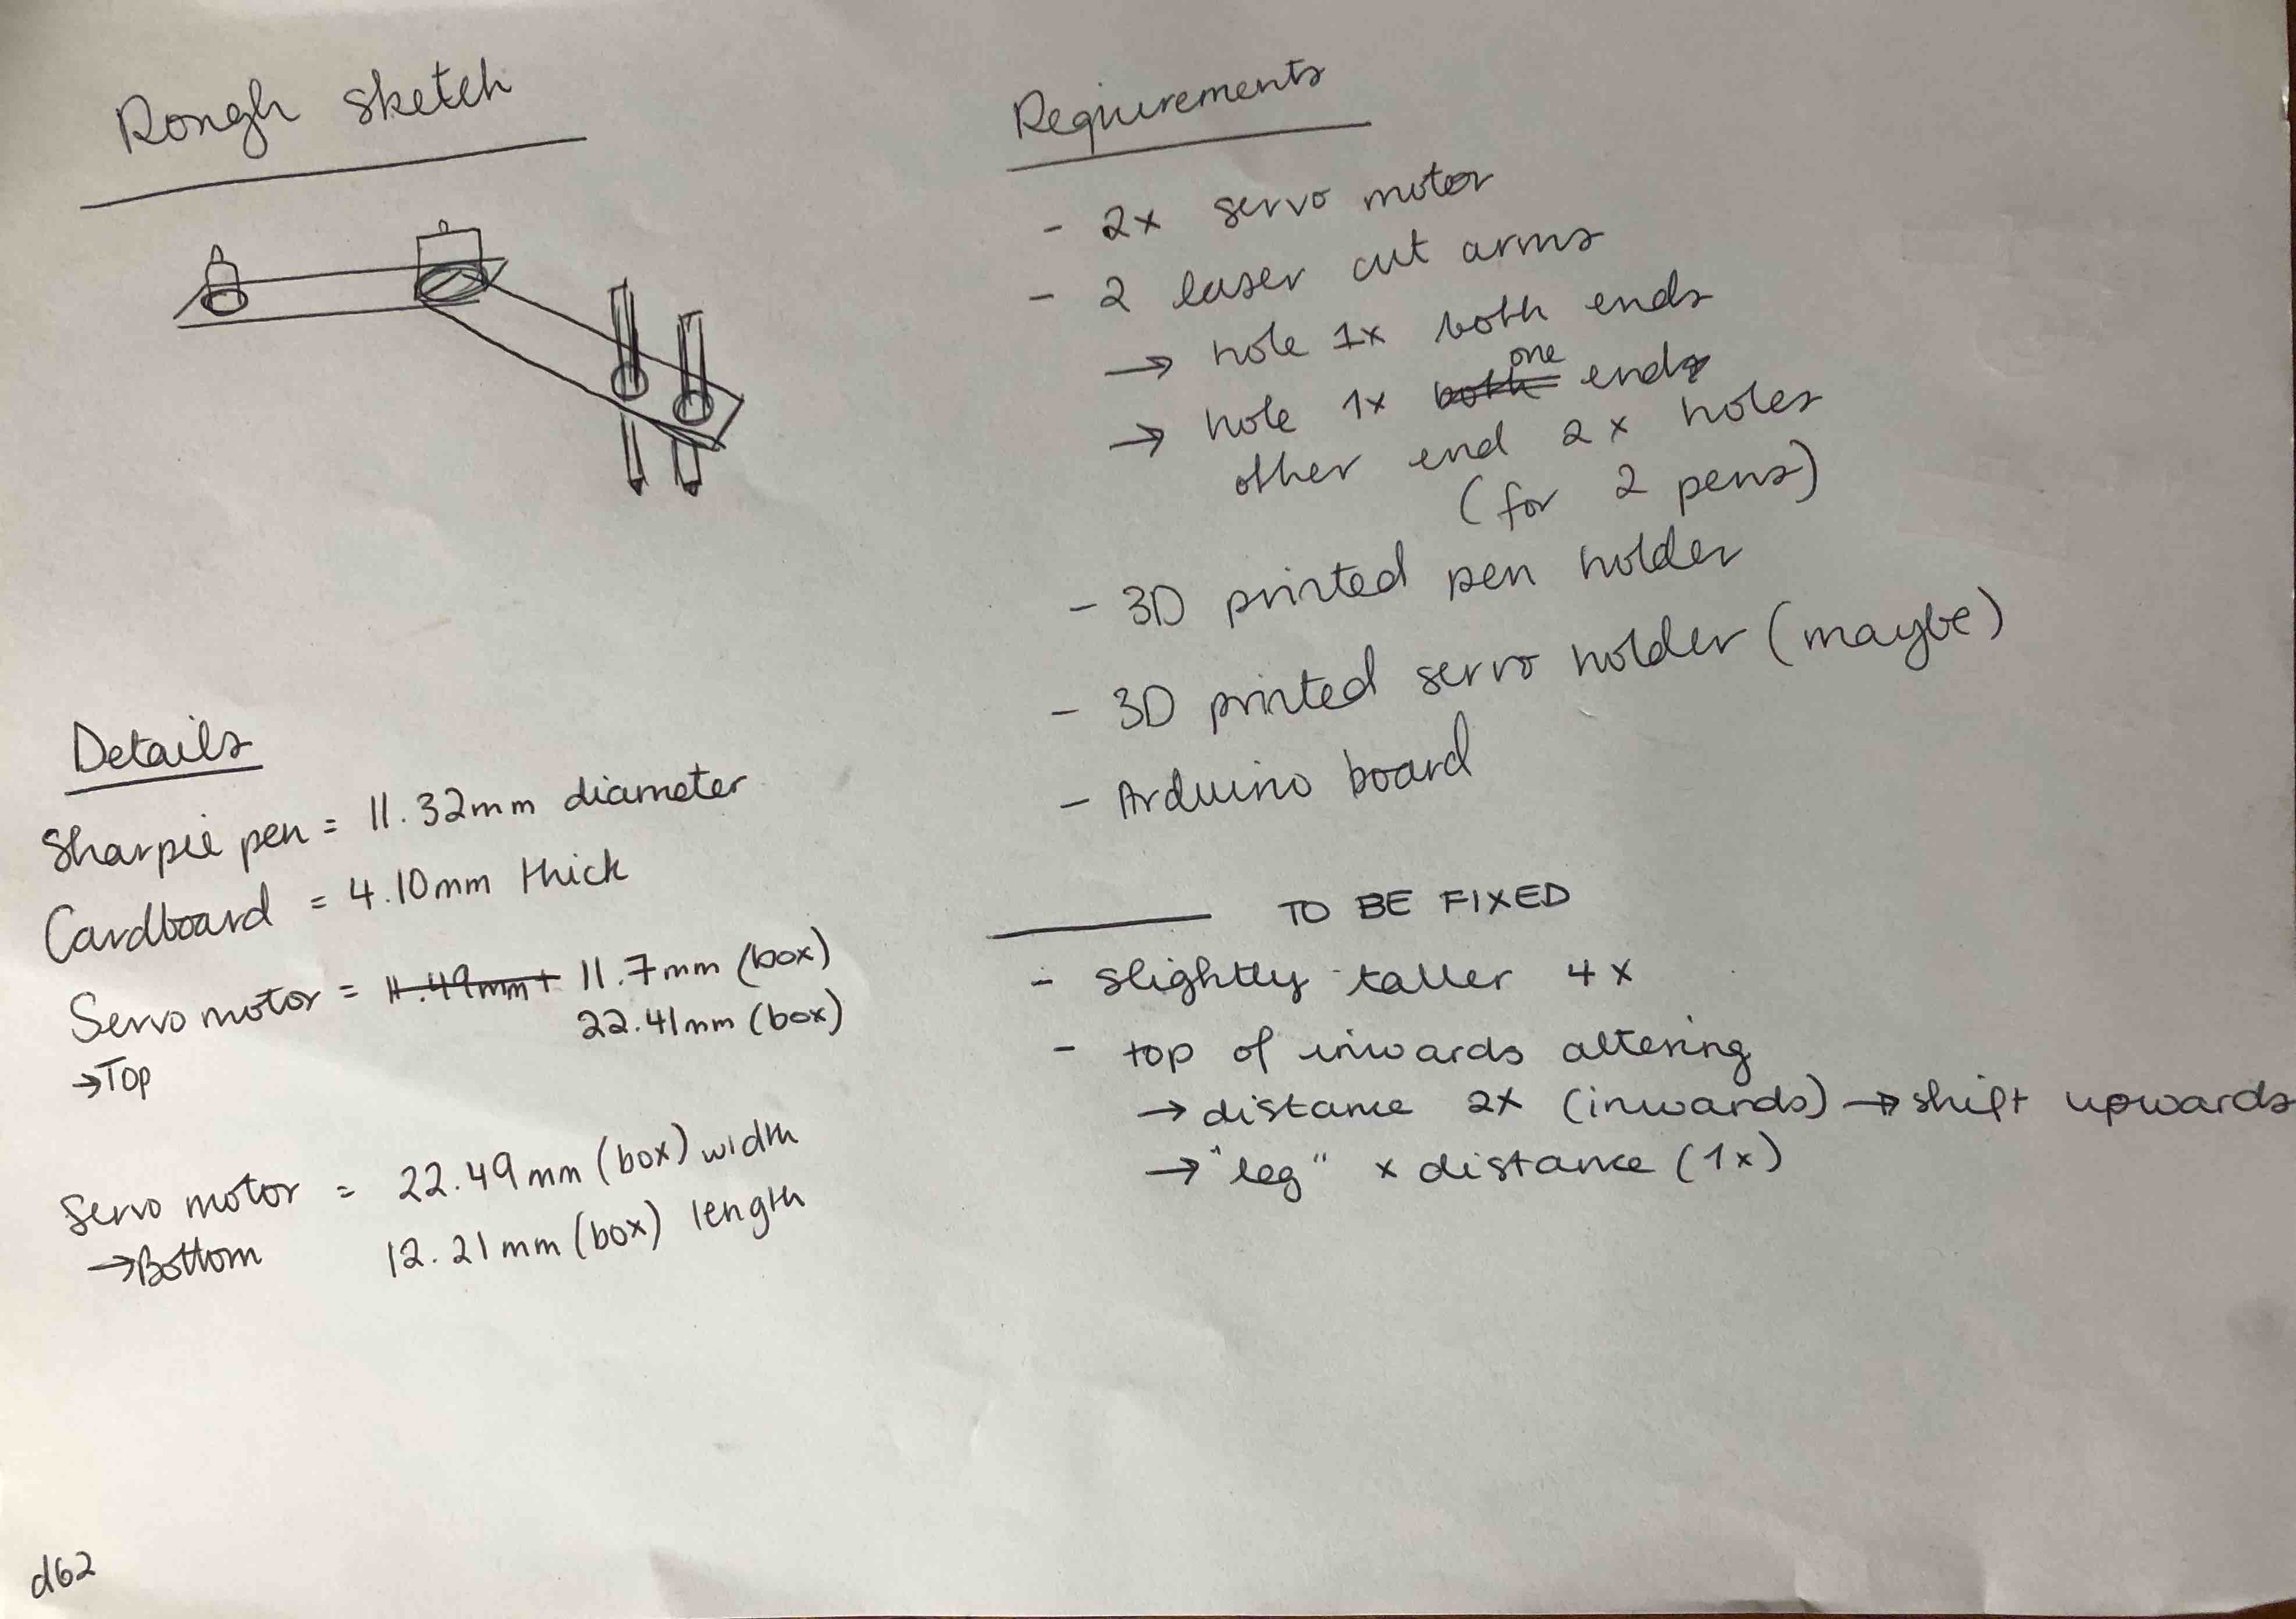 Rough sketch
Details
Sharpie pen = 11.32mm diameter
Cardboard = 4.10mm thick
Servo motor = 11.49mm+ 11.7mm (box)
22.41mm (box)
→Top
Servo motor = 22.49mm (box) width
→Bottom 12.21mm (box) length
d62
Requirements
- 2x servo motor
- 2 laser cut arms
→ hole 1x both ends
→ hole 1x both one ends
other end 2x holes
(for 2 pens)
- 3D printed pen holder
- 3D printed servo holder (maybe)
- Arduino board
TO BE FIXED
- slightly taller 4x
- top of inwards altering
→ distance 2x (inwards) → shift upwards
→ "leg" x distance (1x)